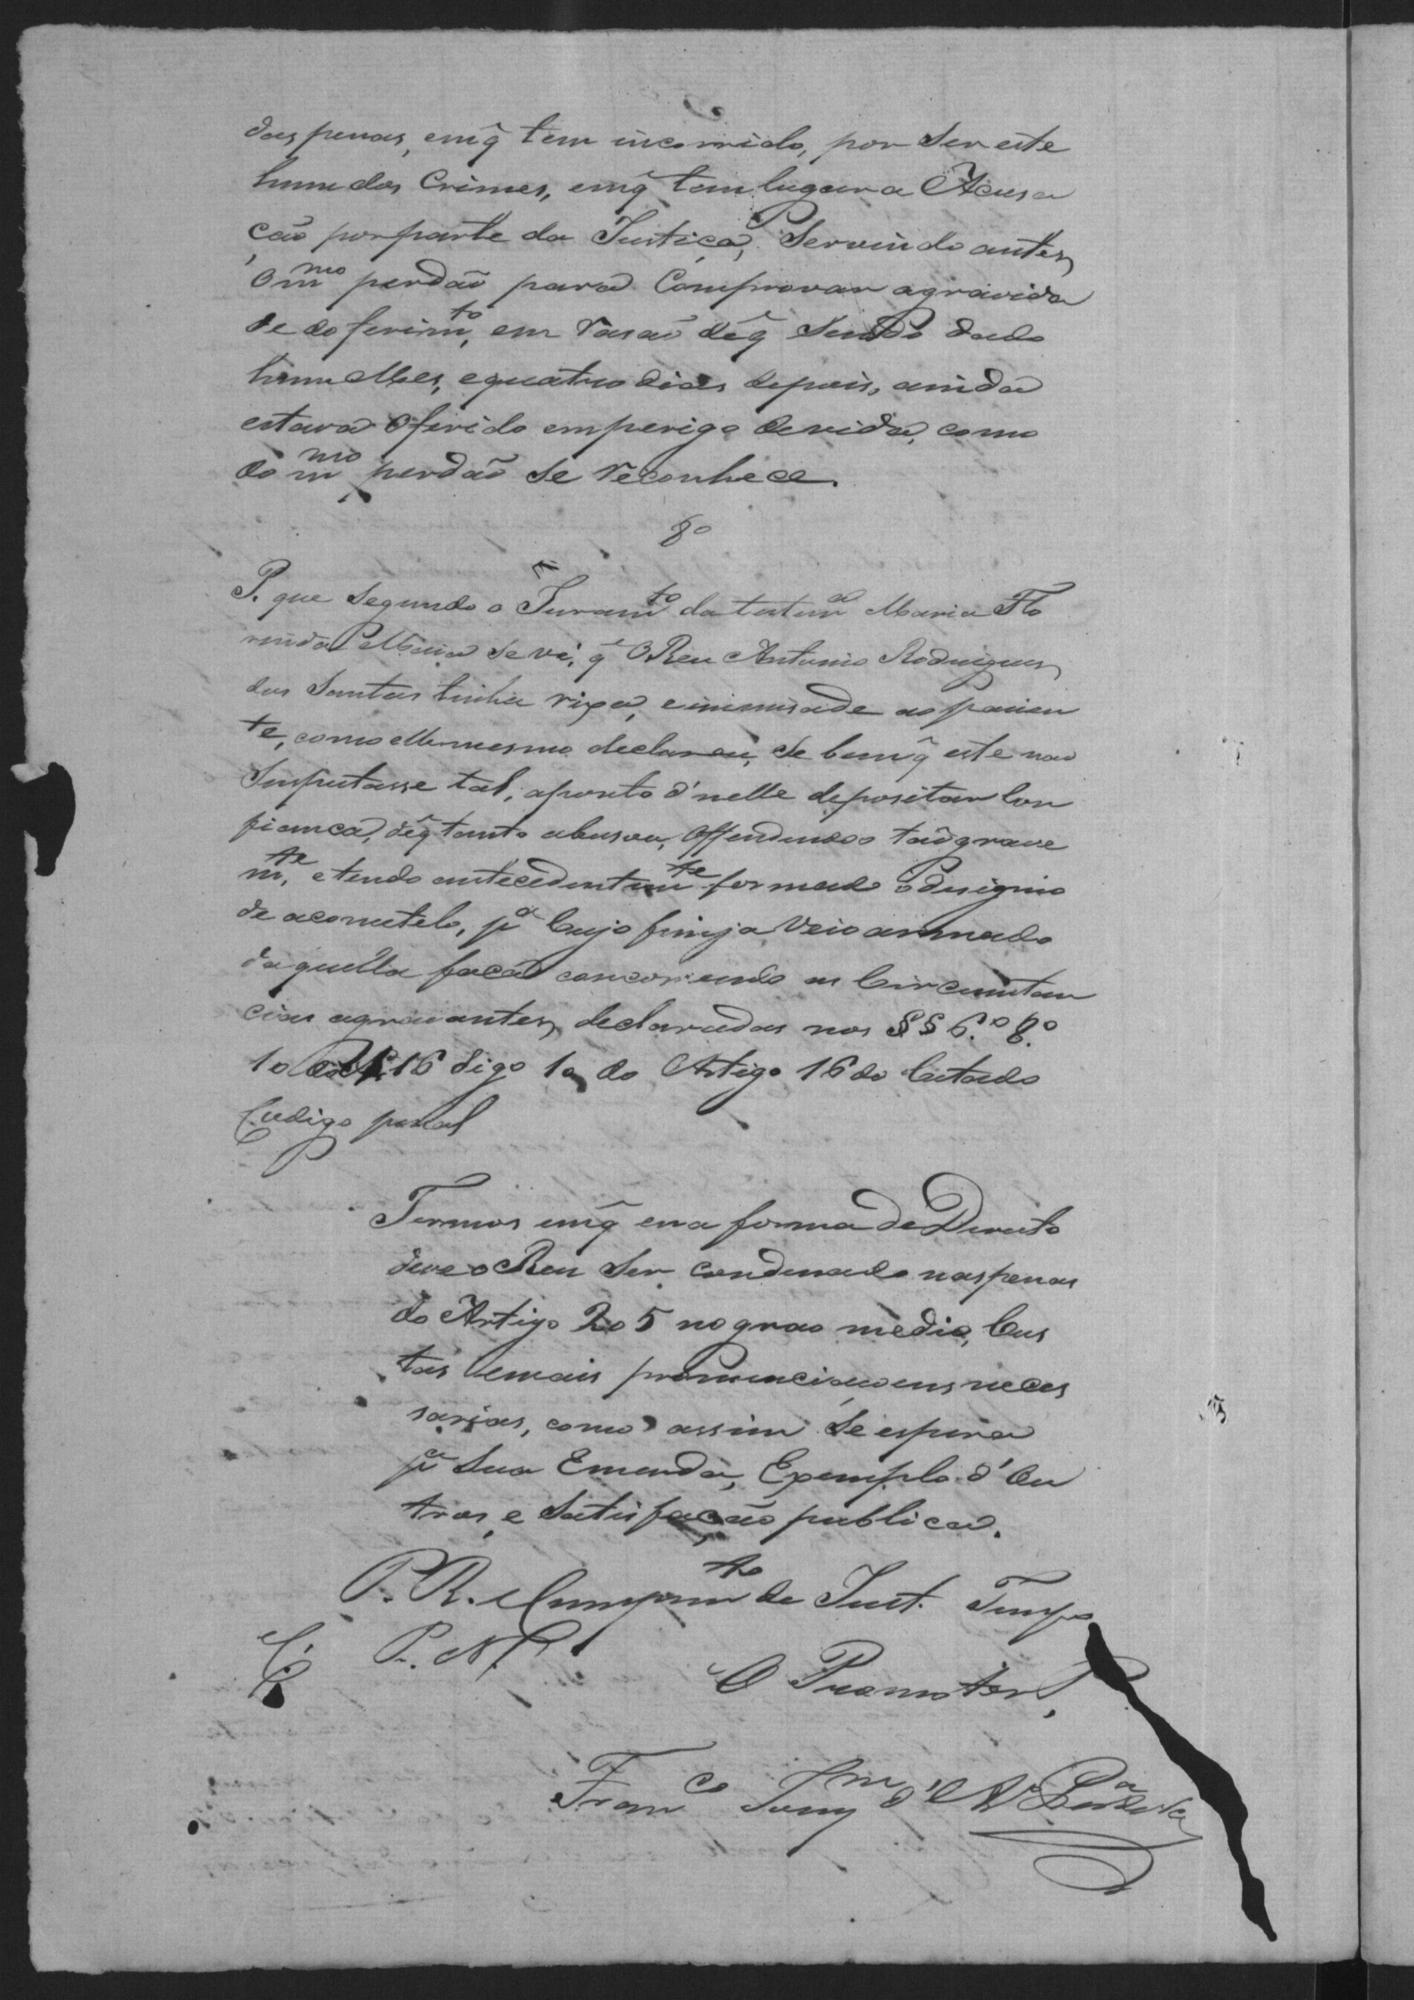 das penas, em q̃ tem incorrido, por Ser este
hum dos Crimes, em q̃ tem lugar a Acusa
ção por parte da Justiça, Servindo antes
o mmo perdão para Comprovar a gravida
de do ferimto, em rasão de q̃ Sendo dado
hum Mes, e quatro dias depois, ainda
estava o ferido em perigo de vida, como
do mmo perdão se reconhece.
8º
P. que Segundo o Juramto da testema Maria Flo
rinda Maia se vê, q̃ O Reu Antonio Rodrigues
dos Santos tinha rixa, e inimisade ao pacien
te, como elle mesmo declarou, se bem q̃ este não
Suputasse tal, a ponto d'nelle depositar Con
fiança, de q̃ tanto abusou, Offendendo o tão grave
mte, e tendo antecedentemte formado o designio
de acometelo, pa Cujo fim já Veio armado
daquella faca concorrendo as Circunstan
cias agravantes, declaradas nos §§ 6.º 8.º
10 16 digo 10 do Artigo 16 do Citado
Codigo penal
Termos em q̃ e na forma de Direito
deve o Reu Ser condenado nas penas
do Artigo 205 no grao medio, Cus
tas e mais pronunciaçoens neces
sarias, como assim Se espera
pa Sua Emenda, Exemplo d'Ou
tros, e Satisfação publica.
P. R. e Cumprimto de Just. Temp
P. N.
O Promotor
Franco